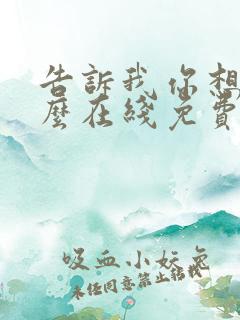 告訴我 你想
麼在綫免費
吸血小妖兔
未任同意禁止轉載